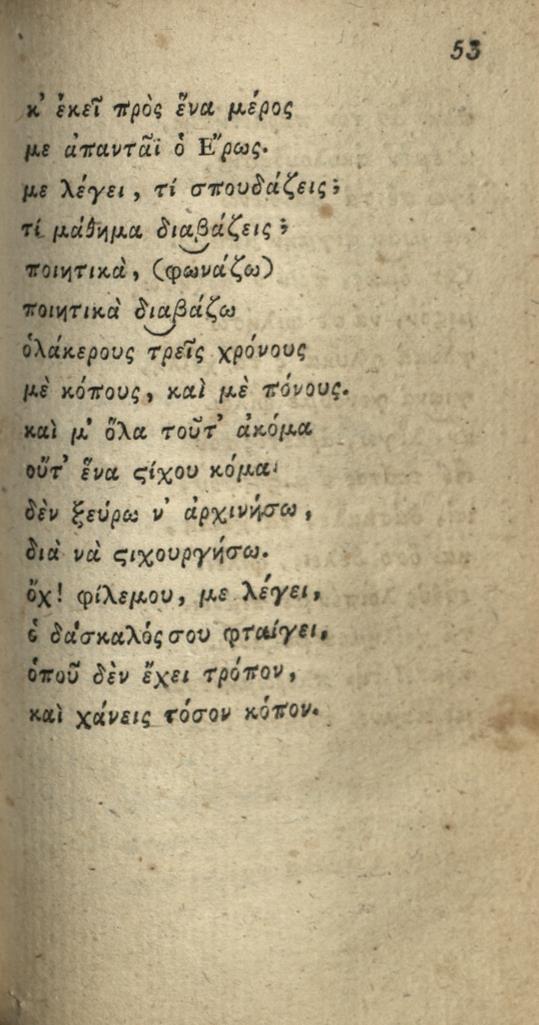 53
κ᾽ ἐκεῖ πρὸς ἕνα μέρος
με ἀπαντᾶϊ ὁ Ἔρως.
με λέγει, τί σπουδάζεις;
τί μάθημα διαβάζεις;
ποιητικὰ, (φωνάζω)
ποιητικὰ διαβάζω
ὁλάκερους τρεῖς χρόνους
μὲ κόπους, καὶ μὲ πόνους.
καὶ μ᾽ ὅλα τοῦτ᾽ ἀκόμα
οὔτ᾽ ἕνα ϛίχου κόμα
δὲν ξεύρω ν᾽ ἀρχινήσω,
διὰ νὰ ϛιχουργήσω.
ὄχ! φίλεμου, με λέγει,
ὁ δάσκαλόςσου φταίγει,
ὁποῦ δὲν ἔχει τρόπον,
καὶ χάνεις τόσον κόπον.